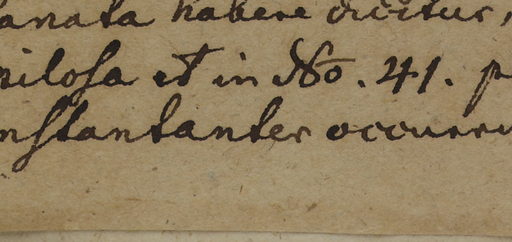 anata habere dicitur,
pilosa et in No. 41. p
nstantanter occurru